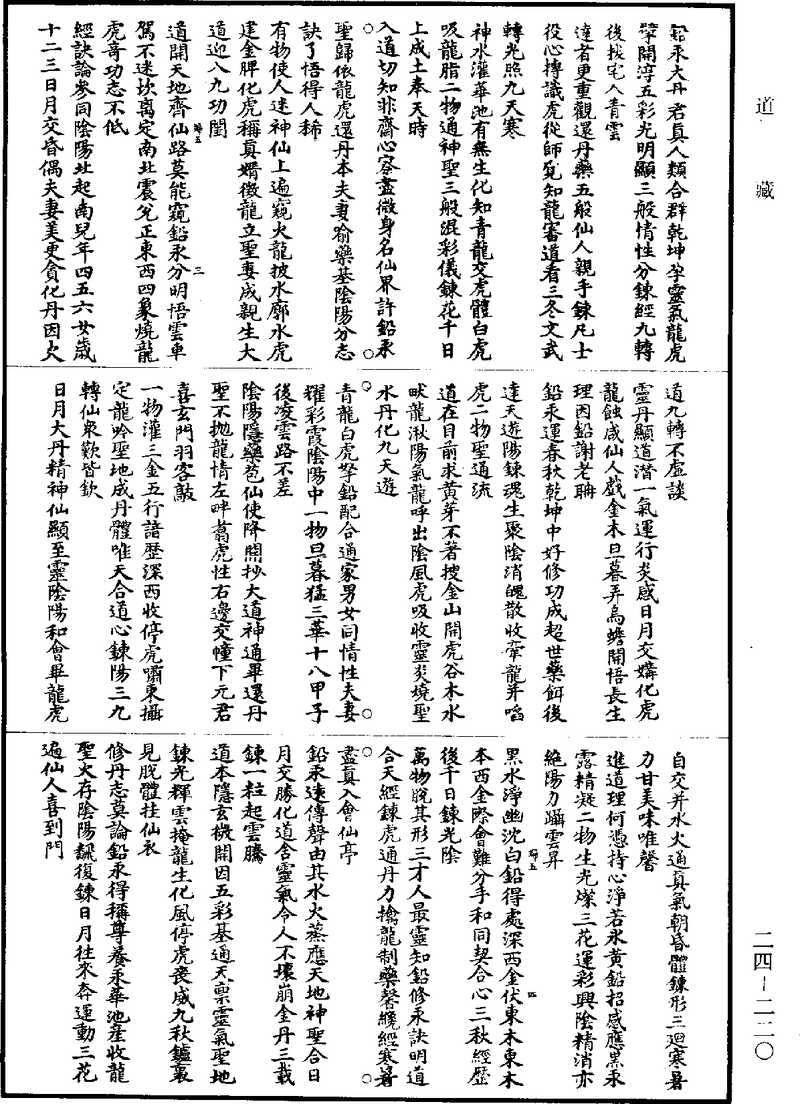 道藏
鉛汞大丹君真人類合群乾坤孕靈氣龍虎
擘開淳五彩光明顯三般情性分鍊經九轉
後拔宅入青雲
達者更重觀還丹藥五般仙人親手鍊凡士
役心摶識虎從師覓知龍審道看三冬文武
轉光照九天寒
神水灌華池有無生化知青龍交虎體白虎
吸龍脂二物通神聖三般混彩儀鍊花千日
上成土奉天時
入道切知非齋心容盡微身名仙界許鉛汞
聖歸依龍虎還丹本夫妻喻藥基陰陽分志
訣了悟得人稀
有物使人迷神仙上遍窺火龍披水廓水虎
建金脾化虎稱真婿徵龍立聖妻成親生大
道迎入九功閨
道開天地齊仙路莫能窺鉛汞分明悟雲車
駕不迷坎离定南北震兊正東西四象燒龍
虎奇功志不低
經訣論參同陰陽北起南兒年四五六女歲
十二三日月交昏偶夫妻美更貪化丹因火
道九轉不虛談
靈丹顯道潛一氣運行炎感日月交媾化虎
龍蝕咸仙人戲金木旦暮弄烏蟾開悟長生
理因鉛謝老聃
鉛汞運春秋乾坤中好修功成超世藥餌後
達天遊陽鍊魂生聚陰消魄散收牽龍并㗖
虎二物聖通流
道在目前求黃芽不著搜金山開虎谷木水
畎龍湫陽氣龍呼出陰風虎吸收靈炎燒聖
水丹化九天遊
青龍白虎孥鉛配合通家男女同情性夫妻
耀彩霞陰陽中一物旦暮猛三華十八甲子
後凌雲路不差
陰陽隱藥苞仙使降開抄大道神通畢還丹
聖不拋龍情左畔翥虎性右邊交幢下元君
喜玄門羽客敲
一物灌三金五行諳歷深西收停虎嘯東攝
定龍吟聖地成丹體唯天合道心鍊陽三九
轉仙泉歎皆欽
日月大丹精神仙顯至靈陰陽和會畢龍虎
自交并水火通真氣朝昏體鍊形三迴寒暑
力甘美味唯馨
進道理何憑持心淨若氷黃鉛招感應黑汞
露精凝二物生光燦三花運彩興陰精消亦
絕陽力躡雲昇
黑水淨幽沈白鉛得處深西金伏東木東木
本西金際會難分手和同契合心三秋經歷
後千日鍊光陰
萬物脫其形三才人最靈知鉛修汞訣明道
合天經鍊虎通丹力擒龍制藥馨纔經寒暑
盡真入會仙亭
鉛汞遠傳聲由其水火蒸應天地神聖合日
月交勝化道含靈氣令人不壞崩金丹三載
鍊一粒起雲騰
道本隱玄微開因五彩基通天禀靈氣聖地
鍊光輝雲掩龍生化風停虎喪威九秋鑪裏
見脫體挂仙衣
修丹志莫論鉛汞得稱尊養汞華池產收龍
聖火存陰陽飜復鍊日月往來奔運動三花
遍仙人喜到門
二四—二二〇